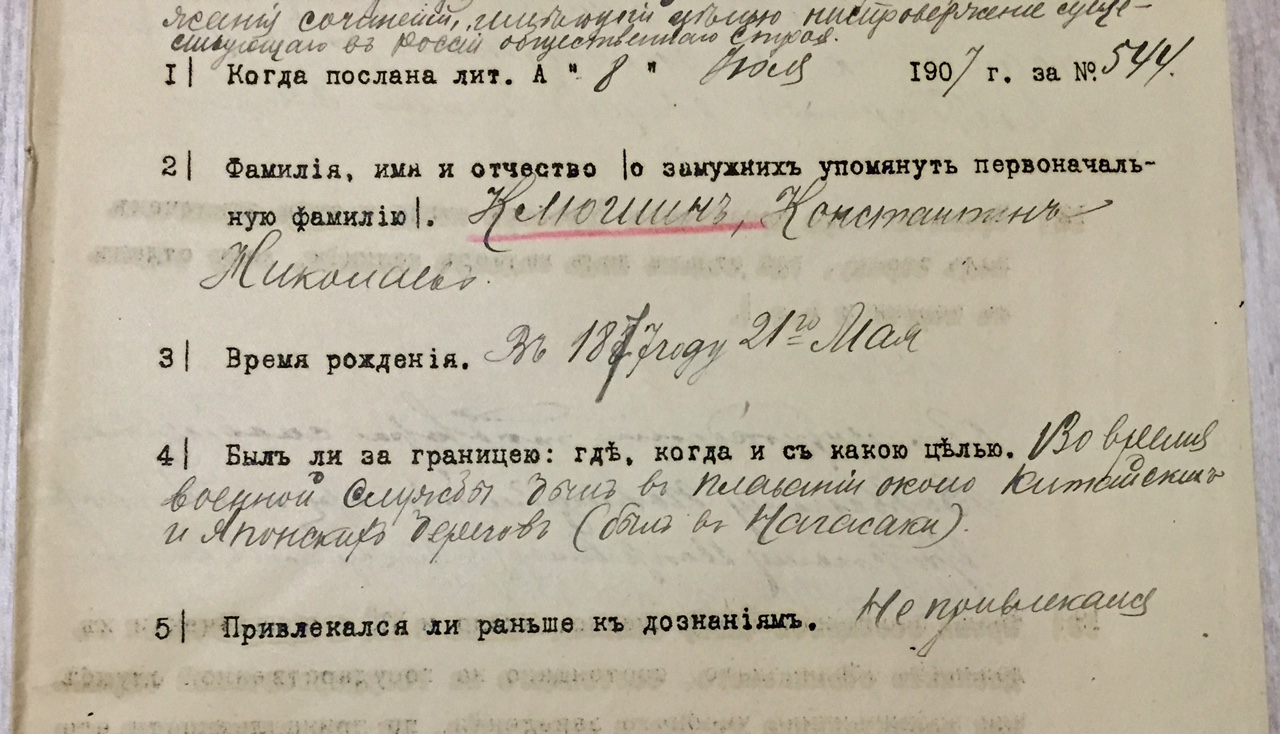 жаній сочиненій, имѣющихъ цѣлью ниспроверженіе суще-
ствующаго въ Россіи общественнаго строя.
1| Когда послана лит. А " 8 " Іюля 1907 г. за №. 544.
2| Фамилія, имя и отчество |о замужнихъ упомянуть первоначаль-
ную фамилію|. Клюшинъ, Константинъ
Николаевъ.
3| Время рожденія. Въ 1877 году 21го Мая
4| Былъ ли за границею: гдѣ, когда и съ какою цѣлью. Во время
военной службы былъ въ плаваніи около Китайскихъ
и Японскихъ береговъ (былъ въ Нагасаки).
5| Привлекался ли раньше къ дознаніямъ. Не привлекался